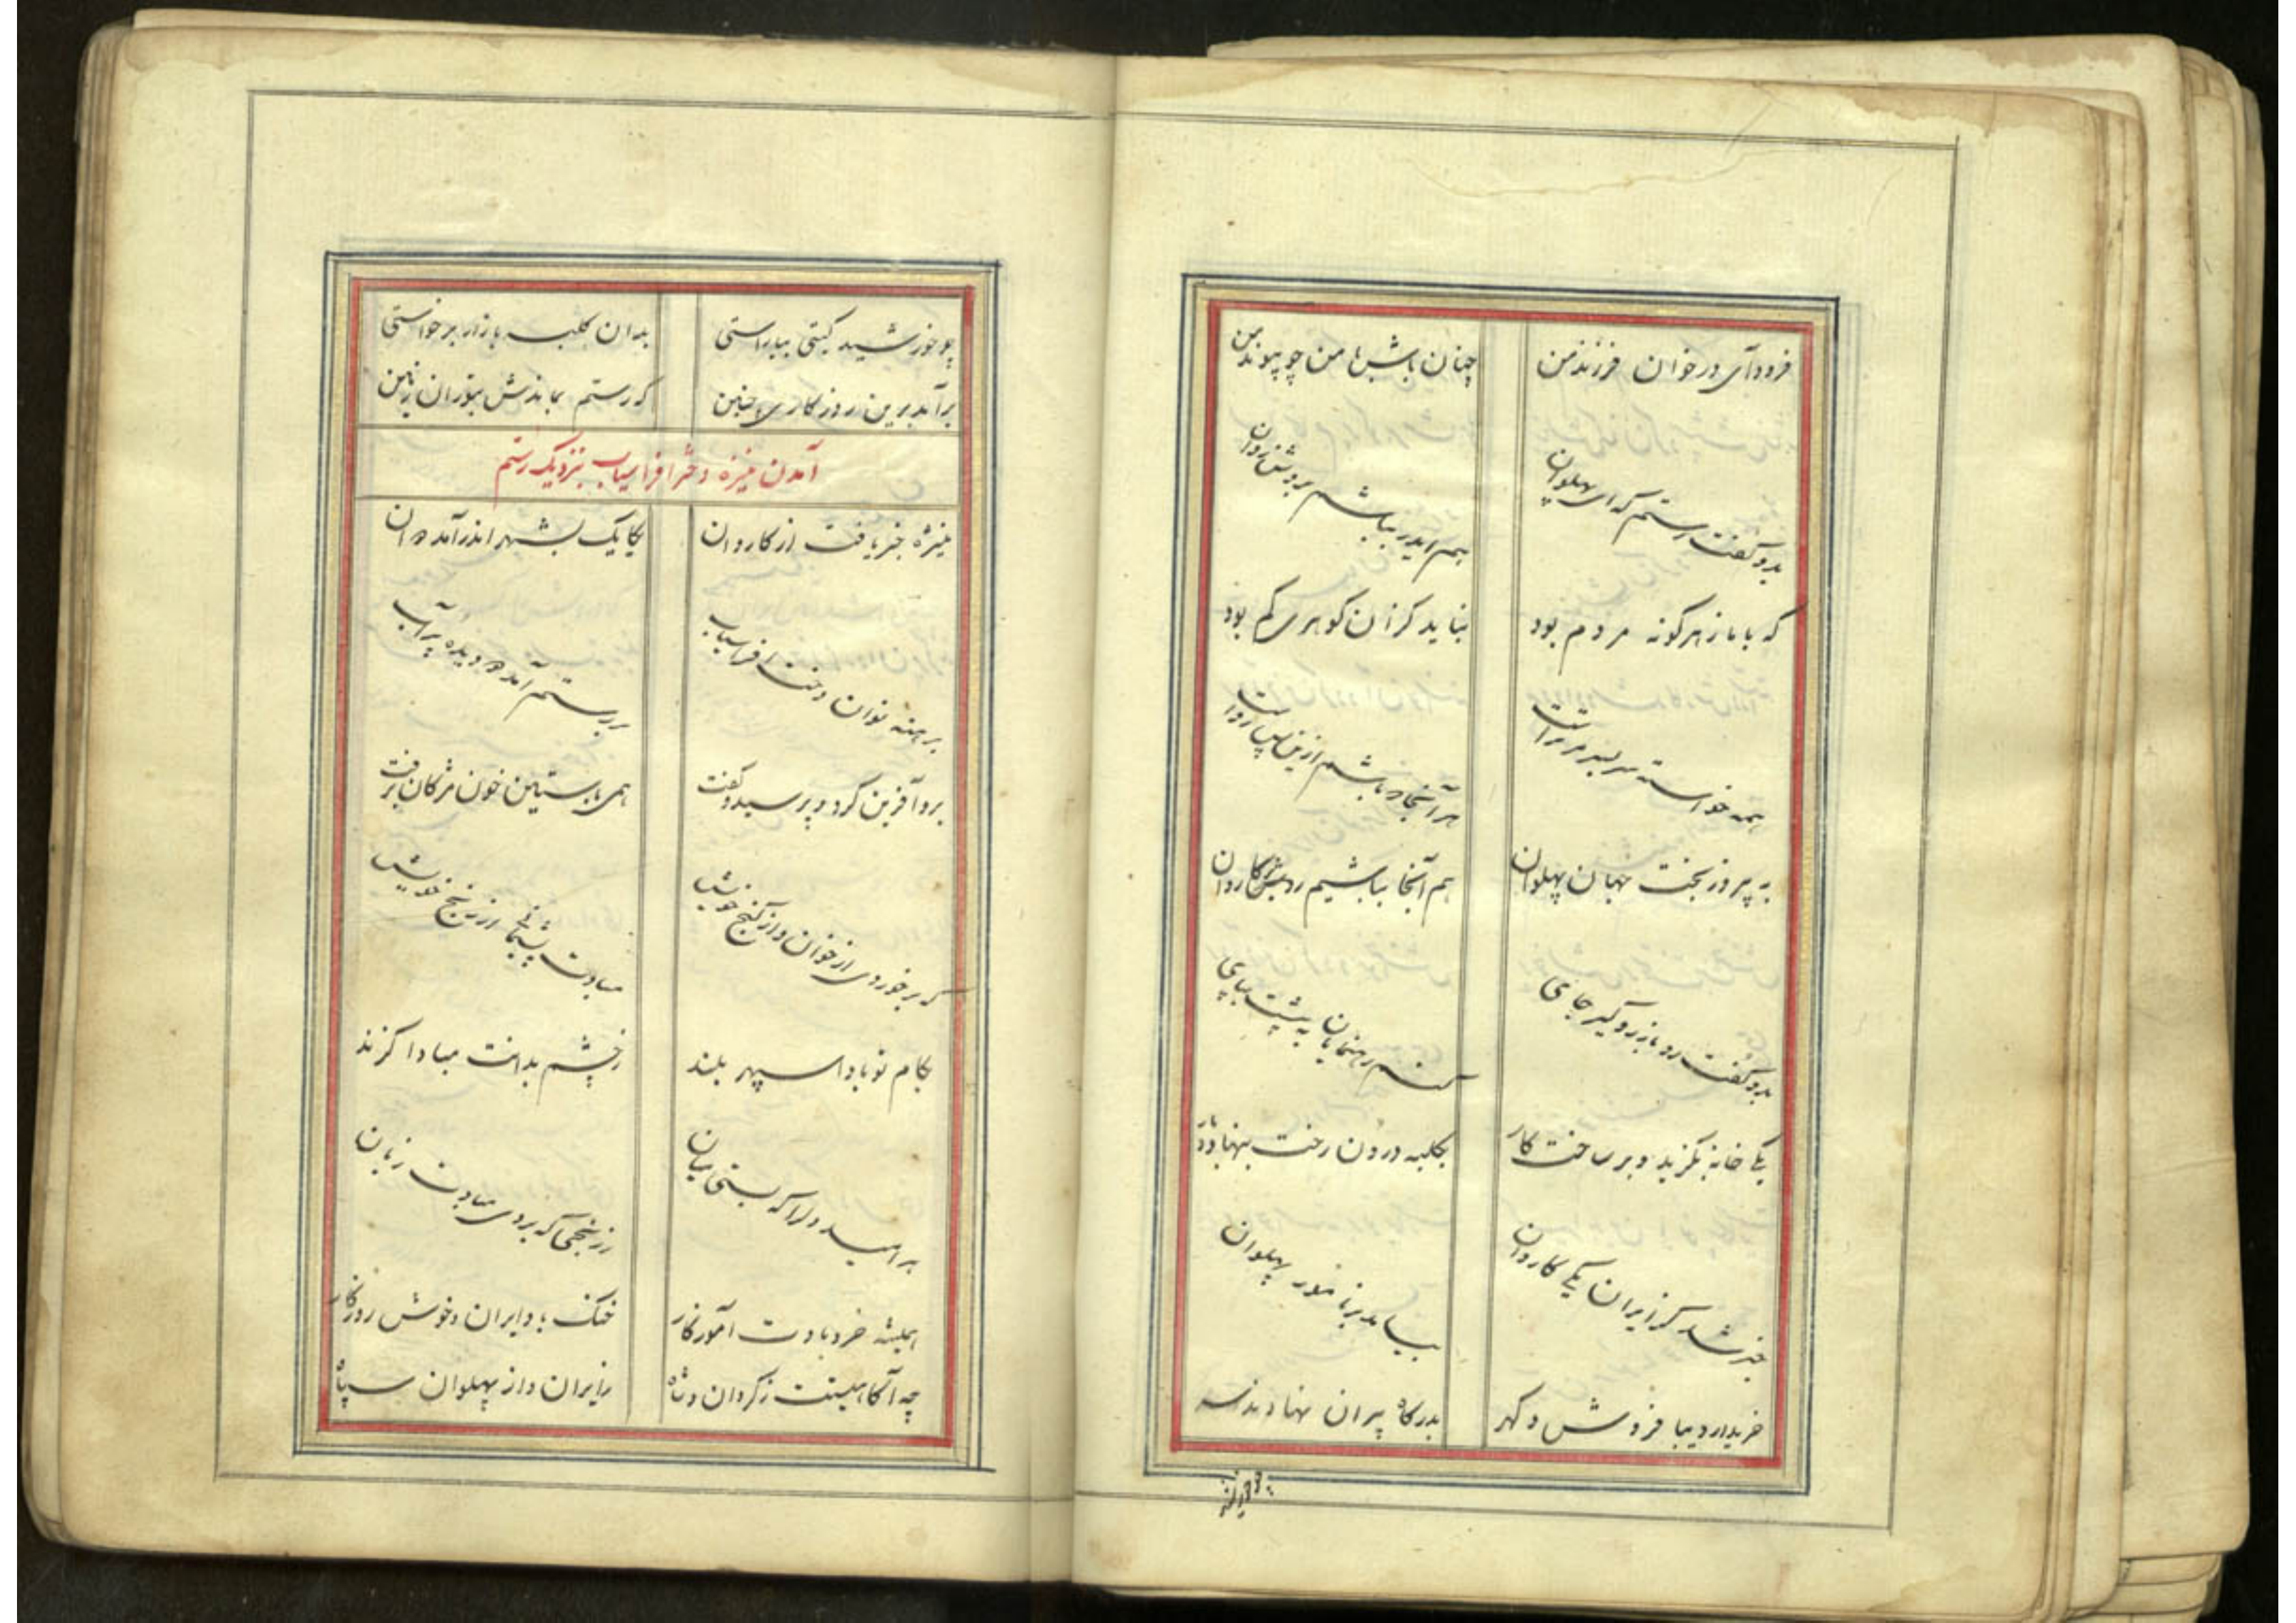 فرود آی در خوان فرزند من چنان باش با من چو پیوند من
بدو گفت رستم که ای پهلوان هم ایدر بباشم روشن روان
که با ما ز هر گونه مردم بود نباید کزان گوهری کم بود
همه خواسته سربسر مر تراست هر آنجا که باشم ازین پس رواست
به پیروز بخت جهان پهلوان هم آنجا بباشیم با کاروان
بدو گفت رو بآرزو گیر جای کنم رهنمایان به پیشت بپای
یکی خانه بگزید و بر ساخت کار بکلبه درون رخت بنهاد و بار
خبر شد کز ایران یکی کاروان بیامد بر نامور پهلوان
خریدار دیبا فروش و گهر بدرگاه پیران نهادند سر
چو خورشید
چو خورشید گیتی بیاراستی بدان کلبه بازار برخواستی
برآمد برین روزگاری چنین که رستم بماندش بتوران زمین
آمدن منیژه دختر افراسیاب بنزدیک رستم
منیژه خبر یافت از کاروان یکایک بشهر اندر آمد دوان
برهنه نوان دخت افراسیاب بر رستم آمد دو دیده پر آب
برو آفرین کرد و پرسید و گفت همی بآستین خون مژگان برفت
که برخوردی از خوان و از گنج خویش مبادت پشیمانی از رنج خویش
بکام تو بادا سپهر بلند ز چشم بدانت مبادا گزند
بر امید دل را که بستی میان ز رنجی که بردی مبادت زیان
همیشه خرد بادت آموزگار خنک باد ایران و خوش روزگار
چه آگاهیستت ز گردان و شاه ز ایران و از پهلوان سپاه